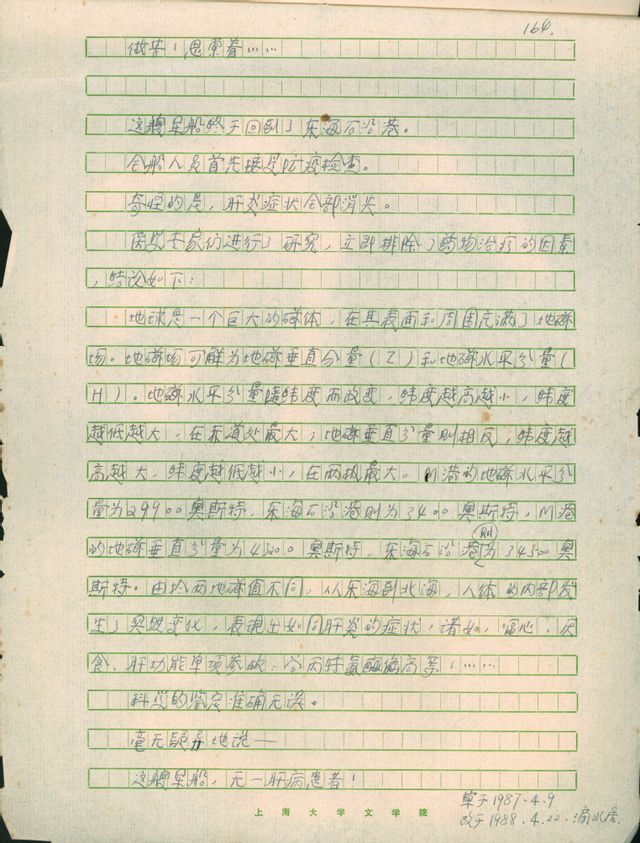 164.
做客！思索着……
这艘星船终于回到了东海石沿港。
全船人员首先接受防疫检查。
奇怪的是，肝炎症状全部消失。
医学专家们进行了研究，立即排除了药物治疗的因素
，结论如下：
地球是一个巨大的磁体，在其表面和周围充满了地磁
场。地磁场可解为地磁垂直分量（Z）和地磁水平分量（
H）。地磁水平分量随纬度而改变，纬度越高越小，纬度
越低越大，在赤道处最大；地磁垂直分量则相反，纬度越
高越大，纬度越低越小，在两极最大。M港的地磁水平分
量为29900奥斯特，东海石沿港则为3400奥斯特，M港
的地磁垂直分量为4300奥斯特，东海石沿港则为34500奥
斯特。由于两地磁值不同，从东海到北海，人体的内部发
生了突然变化，表现出如同肝炎的症状，诸如，恶心、厌
食、肝功能单项参数：谷丙转氨酶偏高等；……
科学的鉴定准确无误。
毫无疑异地说——
这艘星船，无一肝病患者！
上海大学文学院
草于1987.4.9
改于1988.4.22.